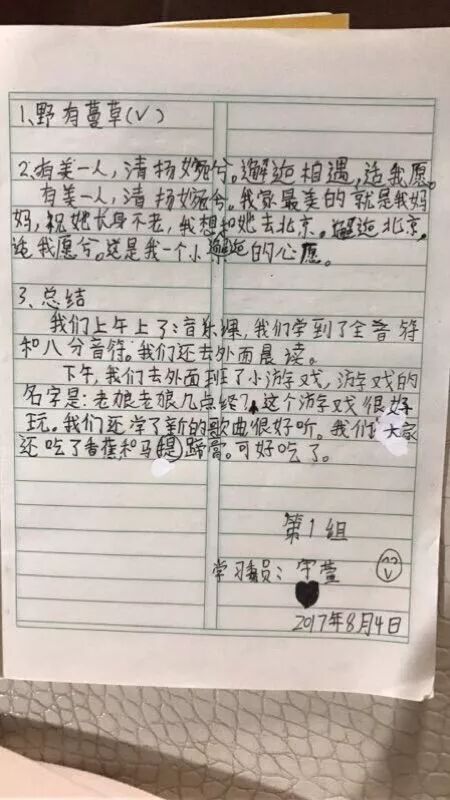 1、野有蔓草(√)
2.有美一人，清扬婉兮。邂逅相遇，适我愿。
有美一人，清扬婉兮。我家最美的就是我妈
妈，祝她长身不老，我想和她去北京。邂逅北京，
适我愿兮。这是我一个小邂逅的心愿。
3、总结
我们上午上了：音乐课，我们学到了全音符
和八分音符。我们还去外面晨读。
下午，我们去外面班了小游戏，游戏的
名字是：老娘老娘几点终？，这个游戏很好
玩。我们还学了新的歌曲很好听。我们大家
还吃了香蕉和马蹄膏。可好吃了。
第1组
学习委员：宇萱
2017年8月4日